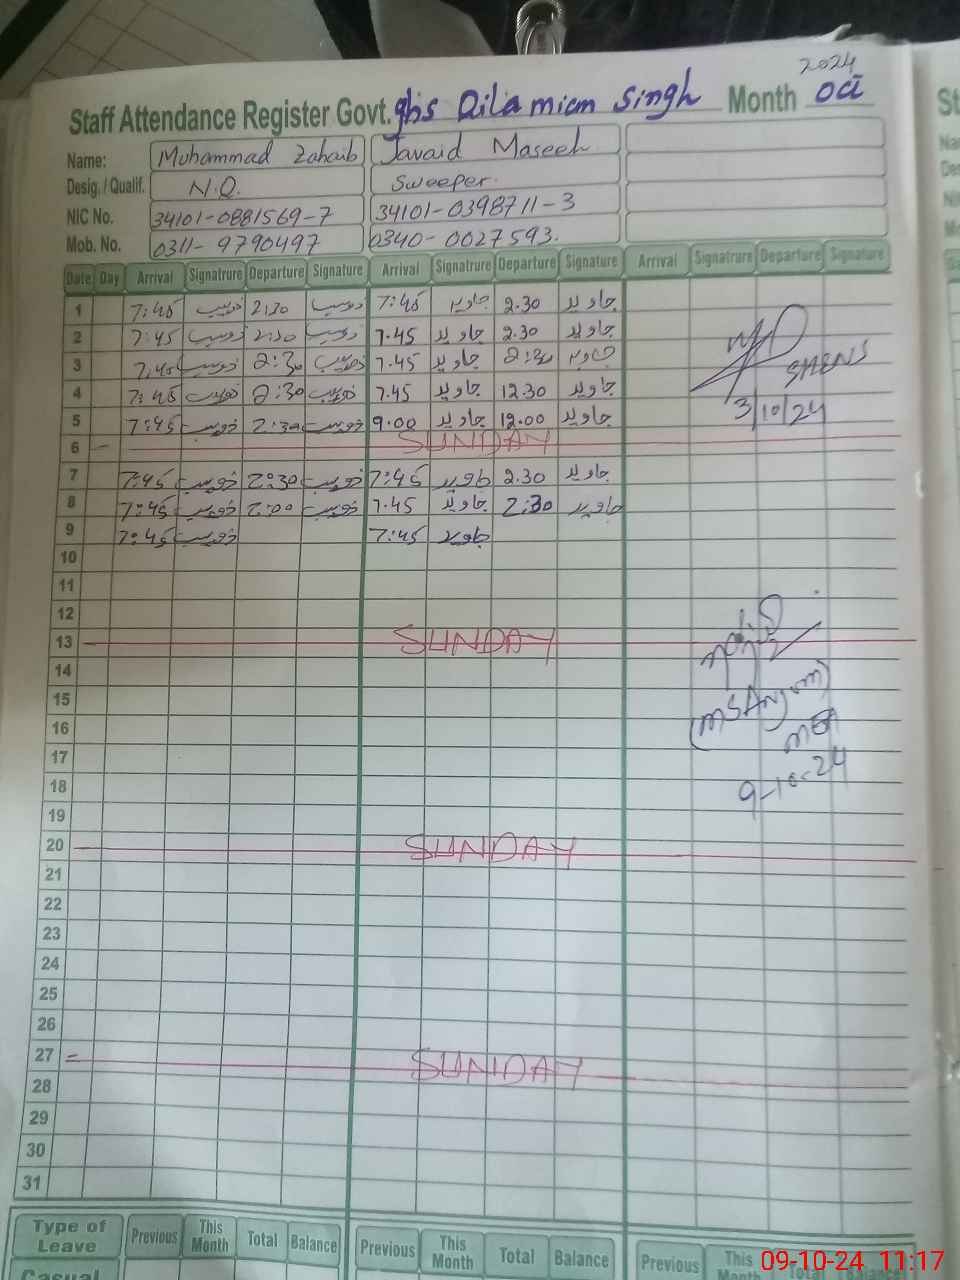 2024
Staff Attendance Register Govt. ghs Qila mian Singh Month Oct
Name: Mohammad Zohaib Javaid Maseeh
Desig. / Qualif. N.Q. Sweeper.
NIC No. 34101-0881569-7 34101-0398711-3
Mob. No. 0311-9790497 0340-0027593.
Date Day Arrival Signatrure Departure Signature Arrival Signatrure Departure Signature Arrival Signatrure Departure Signature
1 7:45 2:30 7:45 جاوید 2.30 جاوید
2 7:45 2:30 7.45 جاوید 2.30 جاوید
3 7:45 2:30 7.45 جاوید 2:30 جاوید
4 7:45 2:30 7.45 جاوید 12.30 جاوید
5 7:45 2:30 9.00 جاوید 12.00 جاوید
3/10/24
6 SUNDAY
7 7:45 2:30 7:45 جاوید 2.30 جاوید
8 7:45 2:00 7.45 جاوید 2:30 جاوید
9 7:45 7:45 جاوید
10
11
12
13 SUNDAY
14
15
(MSAnjum)
16
MEA
17
9-10-24
18
19
20 SUNDAY
21
22
23
24
25
26
27 SUNDAY
28
29
30
31
Type of Leave Previous This Month Total Balance Previous This Month Total Balance Previous This Month Total Balance
Casual
09-10-24 11:17